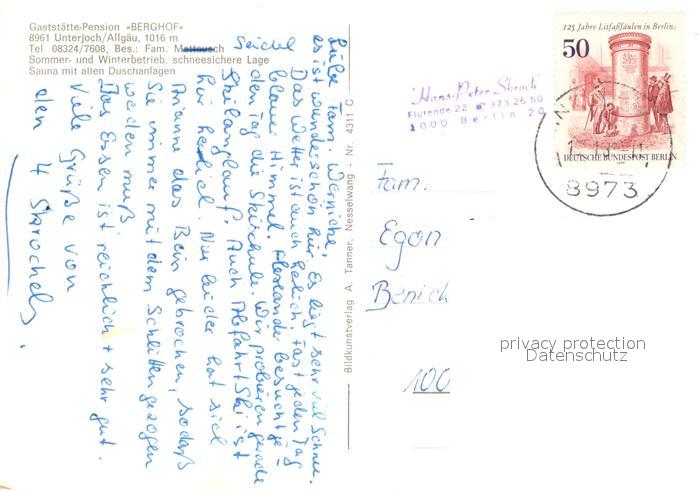 Gaststätte-Pension »BERGHOF«
8961 Unterjoch/Allgäu, 1016 m
Tel. 08324/7608, Bes.: Fam. Mattausch
Sommer- und Winterbetrieb, schneesichere Lage
Sauna mit allen Duschanlagen
Liebe Fam. Benicke,
es ist wunderschön hier. Es liegt sehr viel Schnee.
Das Wetter ist auch herlich. Fast jeden Tag
blauer Himmel. besucht je-
den Tag die Skischule. Wir probieren gerade
Skilanglauf. Auch Abfahrtski ist
hier herlich. Nur leider hat sich
das Bein gebrochen, sodaß
Sie immer mit dem Schlitten gezogen
werden muß.
Das Essen ist reichlich + sehr gut.
Viele Grüße von
den 4 Skrochels.
Bildkunstverlag A. Tanner, Nesselwang · Nr. 4311 C
Hans-Peter Skroch
Flurende 22 ☎ 373 26 50
1000 Berlin 20
125 Jahre Litfaßsäulen in Berlin
50
DEUTSCHE BUNDESPOST BERLIN
8973
Fam.
Egon
Benick
100
privacy protection
Datenschutz